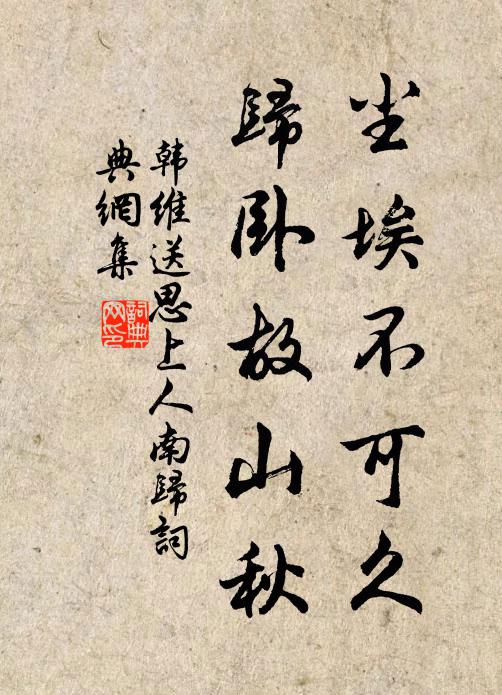 尘埃不可久
歸卧故山秋
韩維送思上人南歸詞
典網集
詞典网印